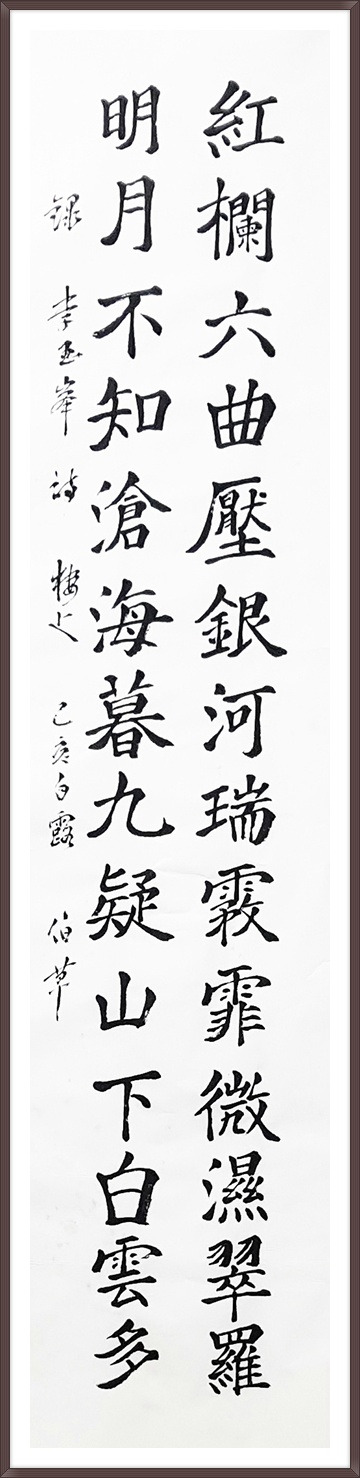 紅欄六曲壓銀河瑞霚霏微濕翠羅
明月不知滄海暮九疑山下白雲多
錄 李玉峯 詩 樓上 己亥白露 伯草